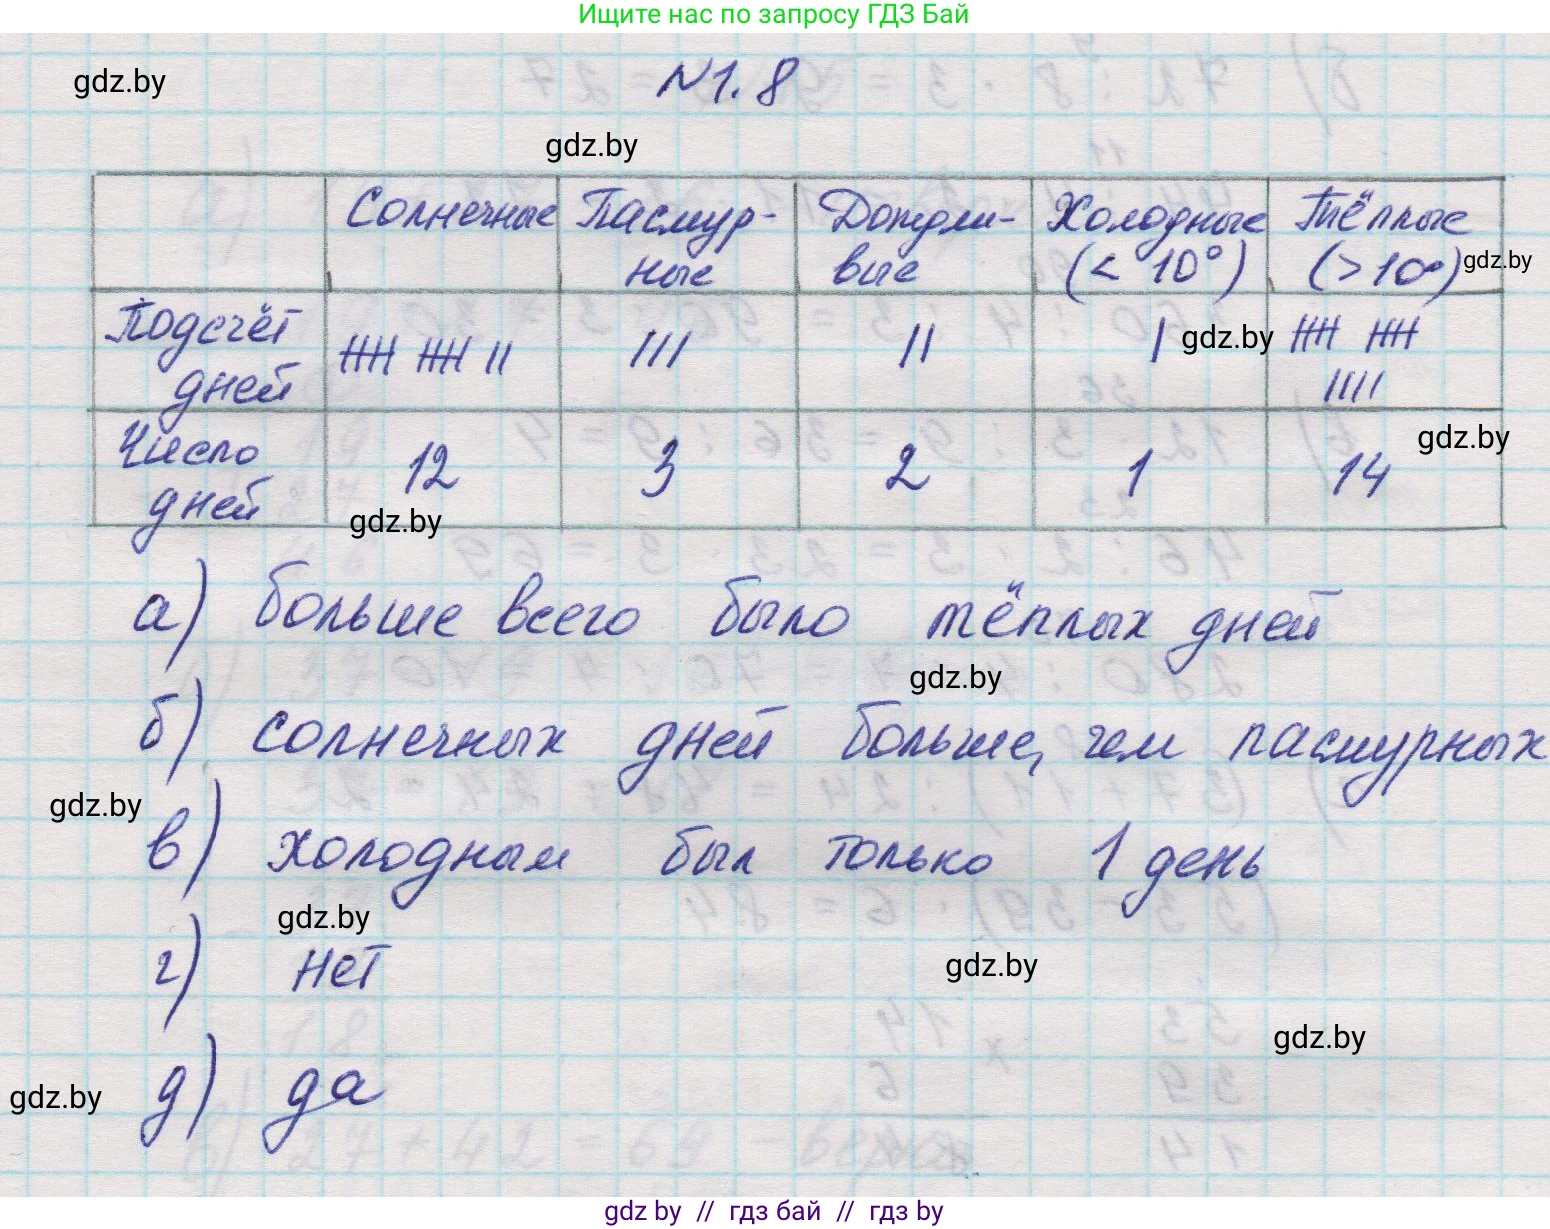 Ищите нас по запросу ГДЗ Бай
gdz.by
№1.8
gdz.by
Солнечные Пасмур- Дождли- Холодные Тёплые
ные вые (< 10°) (>10°) gdz.by
Подсчёт дней |||| |||| || ||| || | gdz.by |||| |||| ||||
gdz.by
Число дней 12 3 2 1 14
gdz.by
а) больше всего было тёплых дней
gdz.by
б) солнечных дней больше, чем пасмурных
gdz.by
в) холодным был только 1 день
gdz.by
г) нет
gdz.by
gdz.by
д) да
gdz.by
gdz by // гдз бай // гдз by